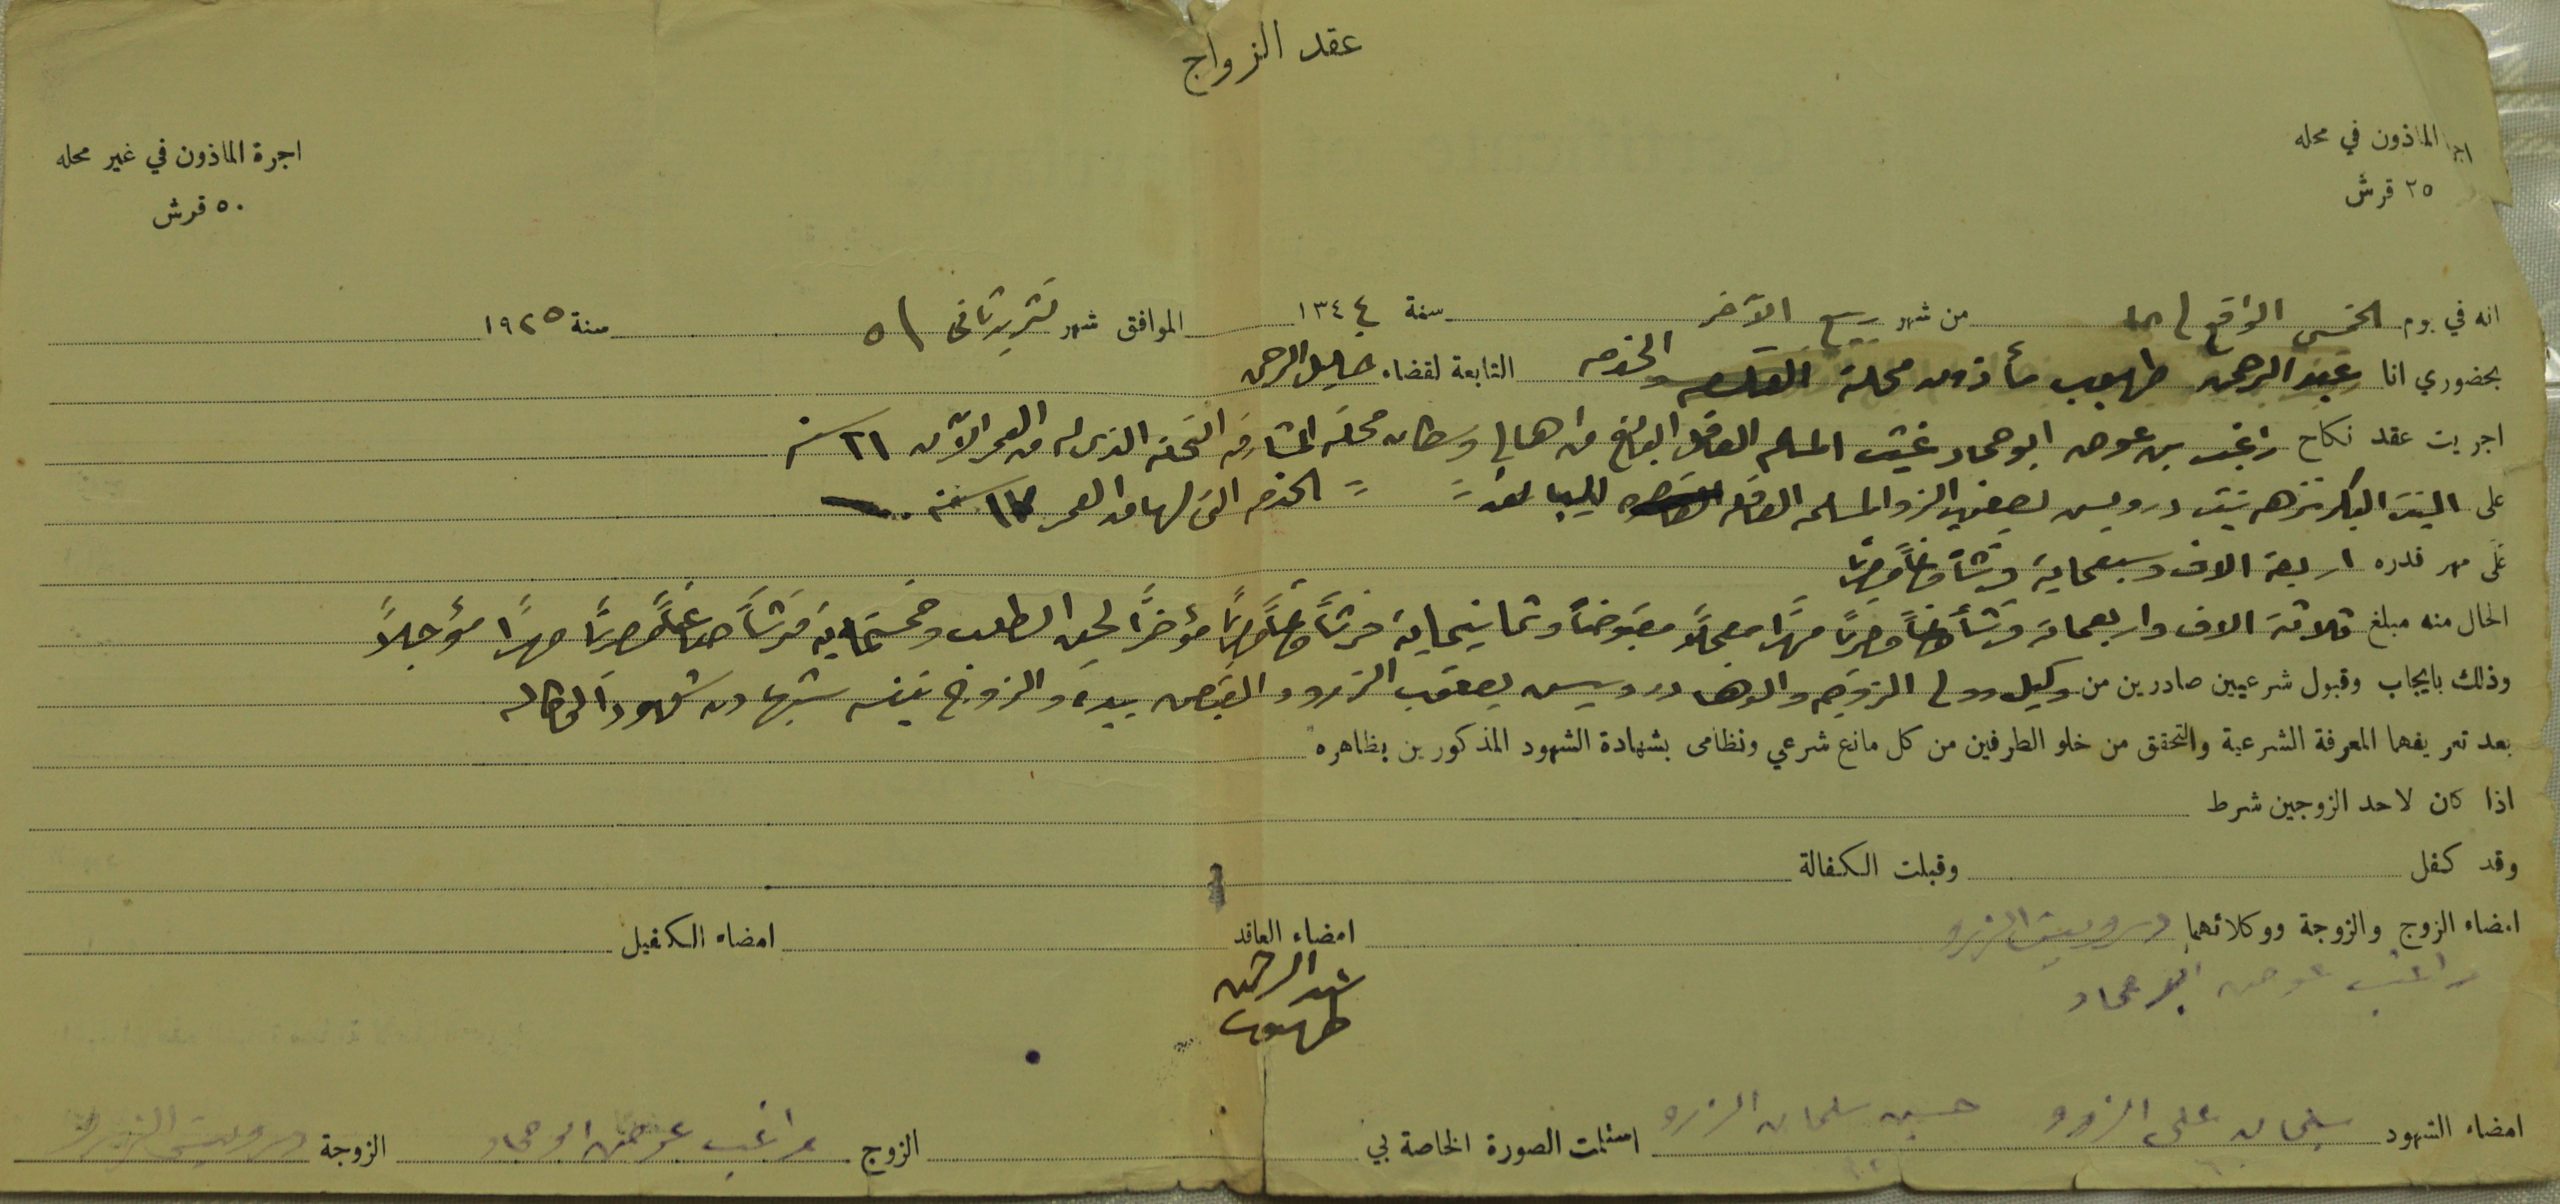 عقد الزواج
الماذون في محله
٢٥ قرش
اجرة الماذون في غير محله
٥٠ قرش
انه في يوم الخميس الواقع في من شهر ربيع الآخر سنة ١٣٤٤ الموافق شهر تشرين ثاني سنة ١٩٢٥
بحضوري انا عبد الرحمن طهبوب مأذون محلة التابعة لقضاء خليل الرحمن
اجريت عقد نكاح راغب بن عوض ابو حماد المسلم العاقل البالغ من اهالي وسكان محلة المشارقة التحتة الذي له من العمر الآن ٢١ سنة
على البنت البكر نزهه بنت درويش يعقوب الزرو المسلمه العاقله التي لها من العمر ١٧ سنة
على مهر قدره اربعة الاف وسبعماية قرشاً صاغاً مصرياً
الحال منه مبلغ ثلاثة الاف واربعماية قرشاً صاغاً مصرياً مهراً معجلاً مقبوضاً وثمانيماية قرشاً صاغاً مصرياً مؤخراً لحين الطلب وخمسماية قرشاً صاغاً مصرياً مهراً مؤجلاً
وذلك بايجاب وقبول شرعيين صادرين من وكيل وولي الزوجه والدها درويش يعقوب الزرو والقبض بيده والزوج بنفسه بشهادة شهود الوكاله
بعد تعريفهما المعرفة الشرعية والتحقق من خلو الطرفين من كل مانع شرعي ونظامى بشهادة الشهود المذكورين بظاهره
اذا كان لاحد الزوجين شرط
وقد كفل وقبلت الكفالة
امضاء الزوج والزوجة ووكلائهما درويش الزرو امضاء العاقد امضاء الكفيل
راغب عوض ابو حماد
عبد الرحمن
طهبوب
امضاء الشهود سليمان علي الزرو حسين سليمان الزرو استلمت الصورة الخاصة بي الزوج راغب عوض ابو حماد الزوجة درويش الزرو